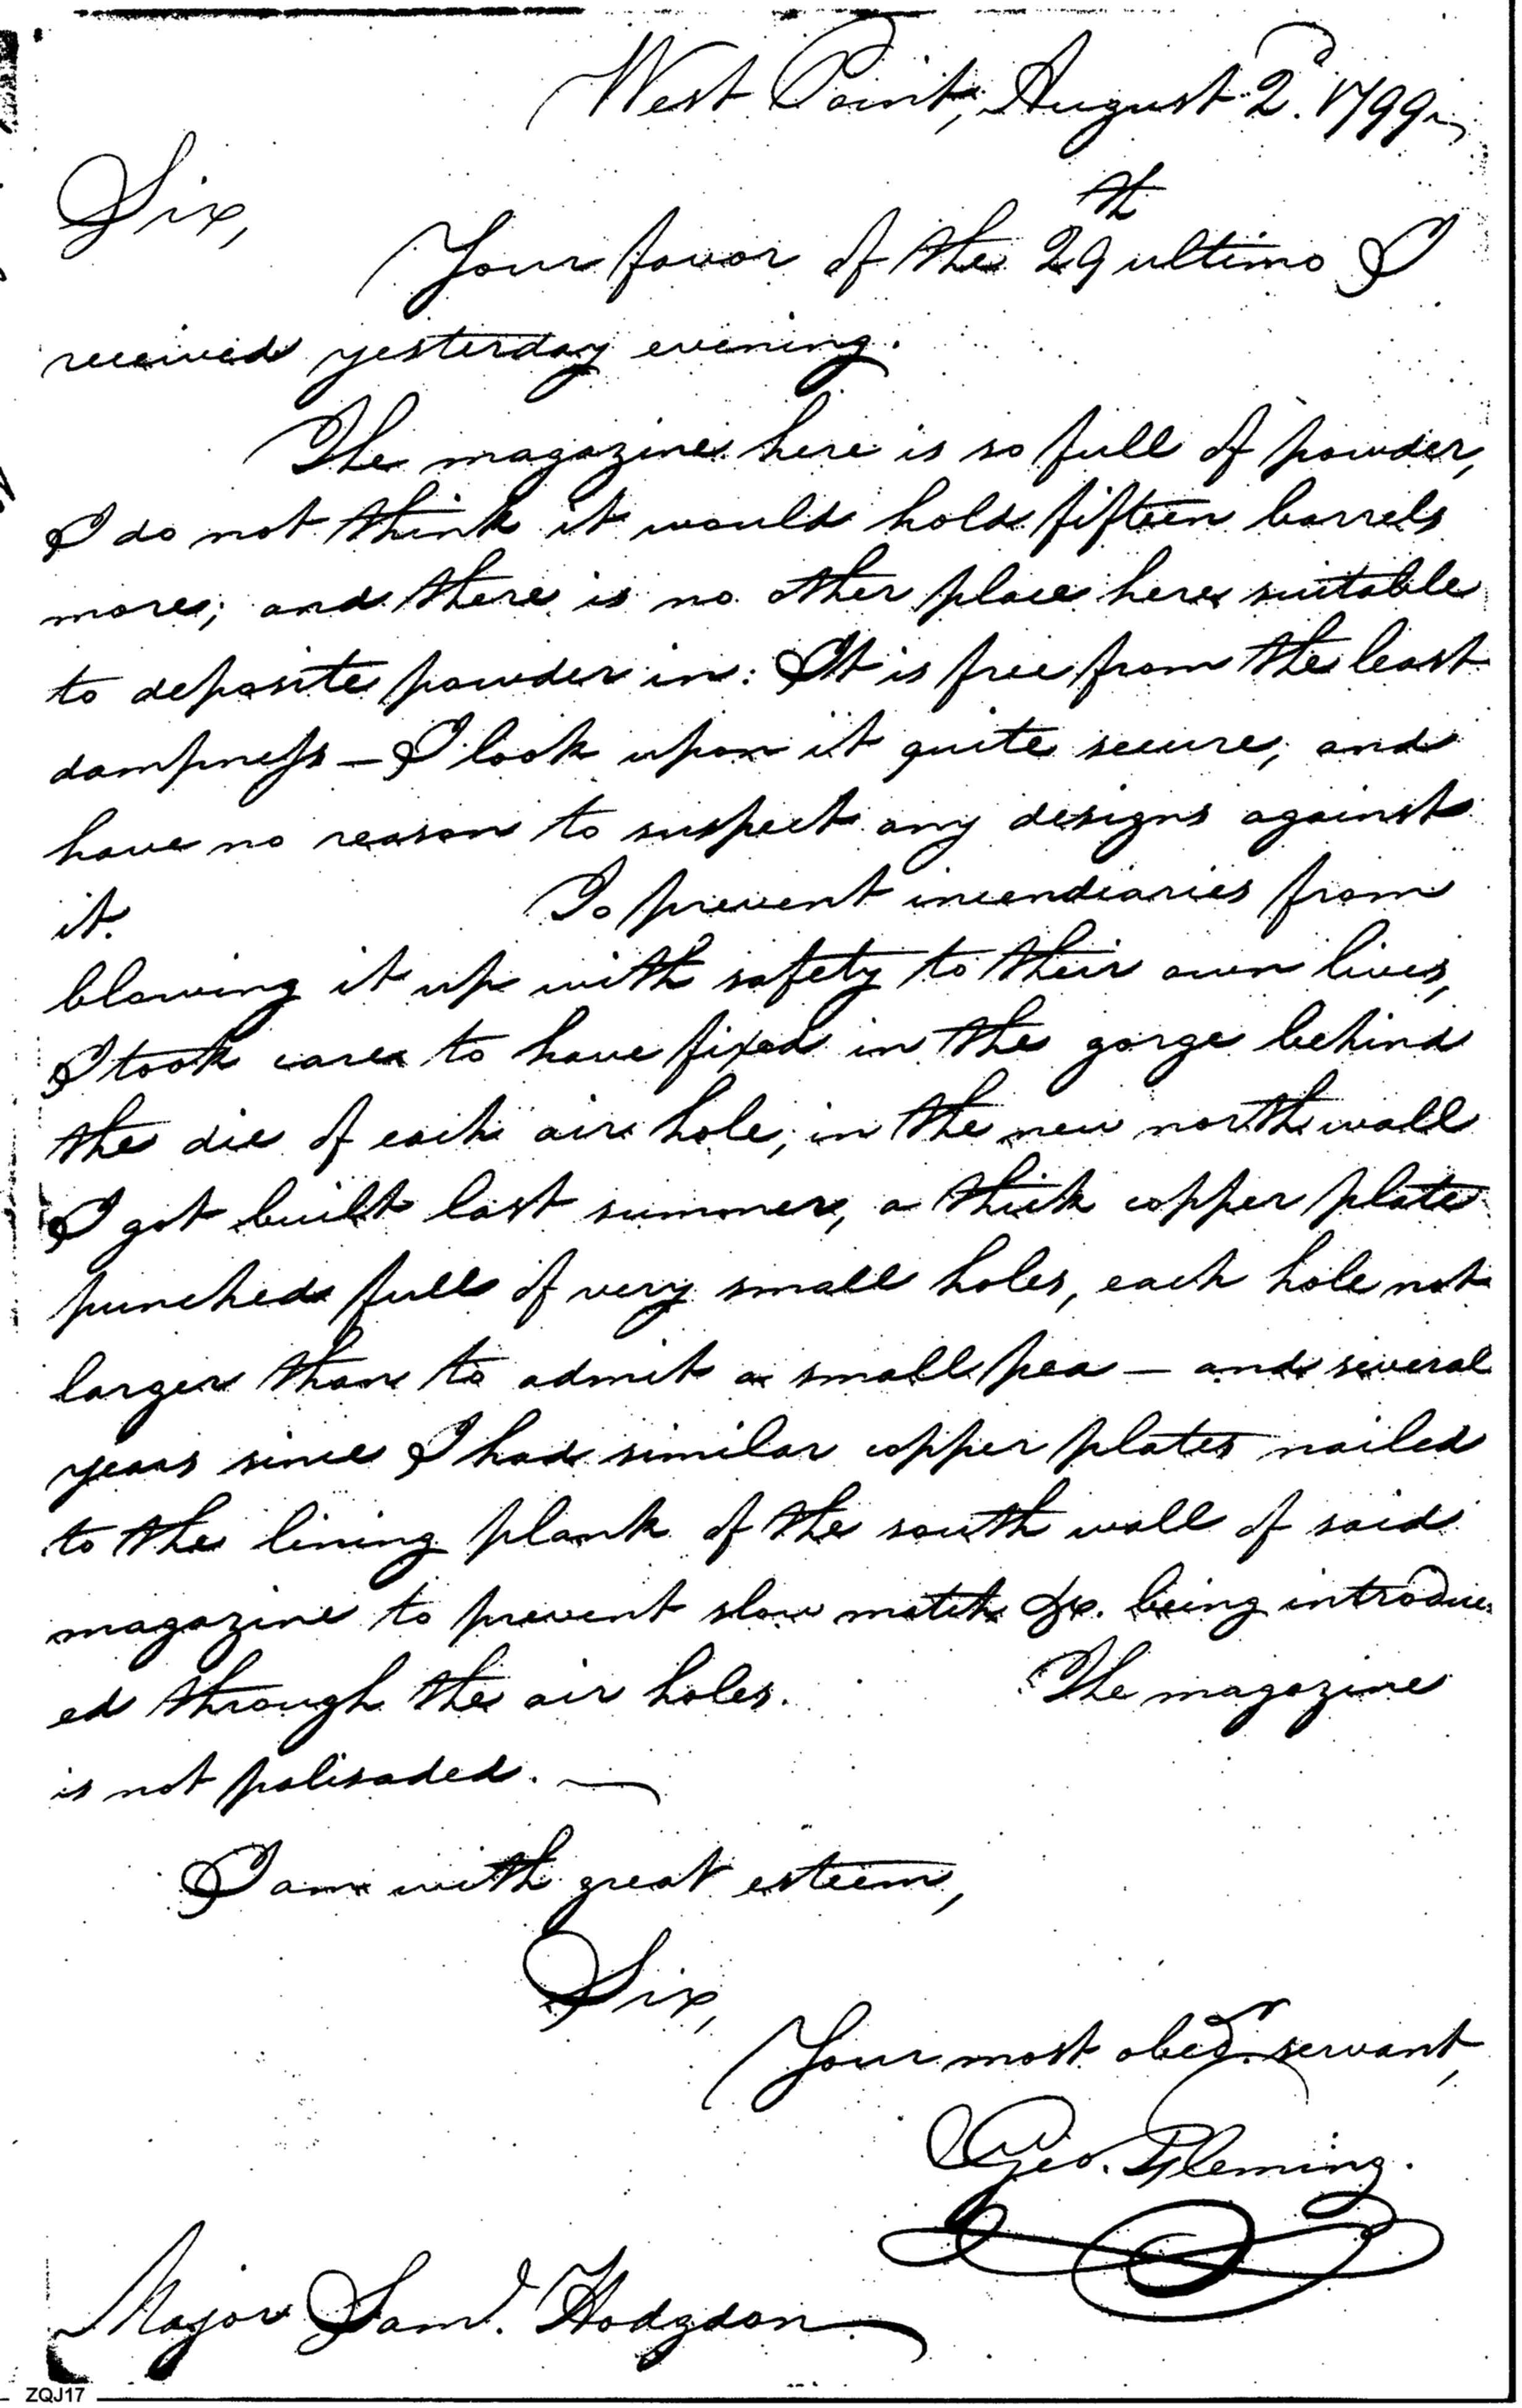 West Point, August 2d. 1799.
Sir,
Your favor of the 29th ultimo I
received yesterday evening.
The magazine here is so full of powder,
I do not think it would hold fifteen barrels
more; and there is no other place here suitable
to deposite powder in: It is free from the least
dampness — I look upon it quite secure, and
have no reason to suspect any designs against
it. To prevent incendiaries from
blowing it up with safety to their own lives,
I took care to have fixed in the gorge behind
the die of each air hole, in the new north wall
I got built last summer, a thick copper plate
punched full of very small holes, each hole not
larger than to admit a small pea — and several
years since I had similar copper plates nailed
to the lining plank of the south wall of said
magazine to prevent slow match &c. being introduc-
ed through the air holes. The magazine
is not palisaded. —
I am with great esteem,
Sir,
Your most obedr. servant,
Geo. Fleming.
Major Saml. Hodgdon
ZQJ17